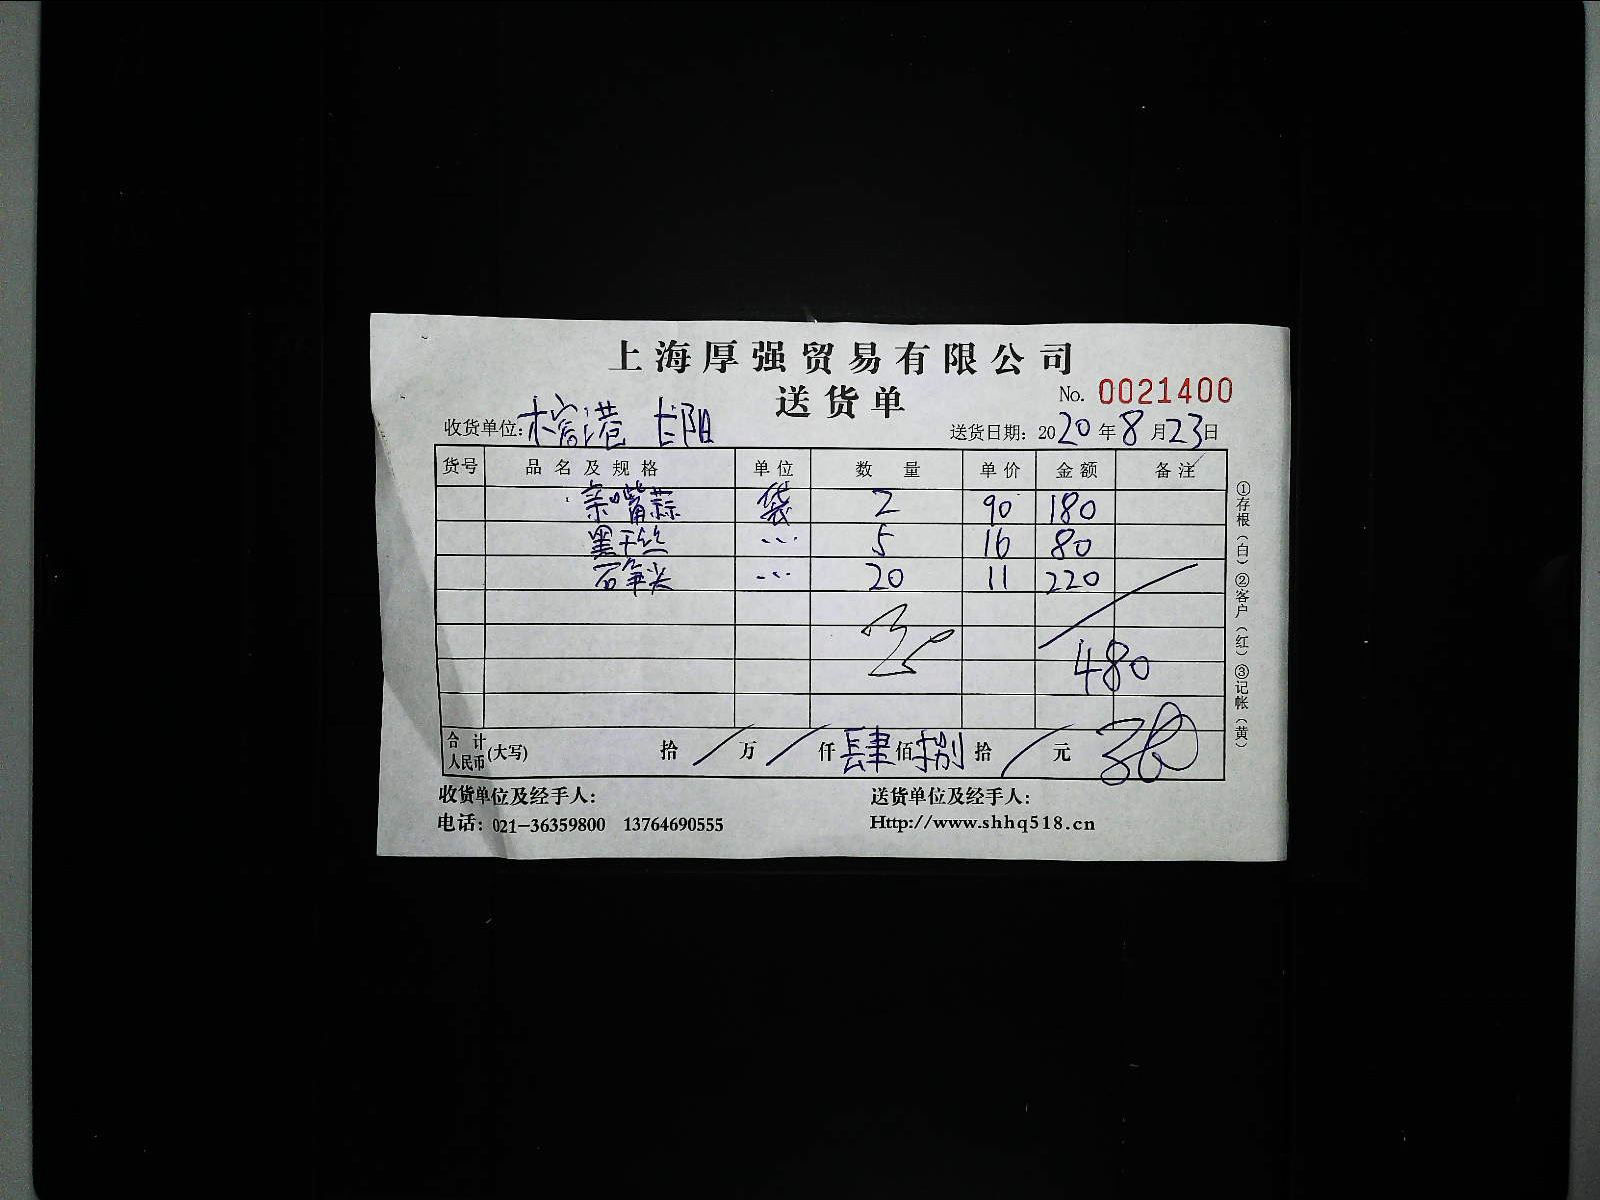 上海厚强贸易有限公司
送货单
No. 0021400
收货单位:榕港 长阳
送货日期: 2020年8月23日
货号 品名及规格 单位 数量 单价 金额 备注
亲嘴蒜 袋 2 90 180
黑干丝 ... 5 16 80
石笋尖 ... 20 11 220
480
合计人民币(大写) 拾 / 万 / 仟 肆 佰 捌 拾 / 元
收货单位及经手人: 送货单位及经手人:
电话: 021-36359800 13764690555 Http://www.shhq518.cn
①存根(白)②客户(红)③记帐(黄)